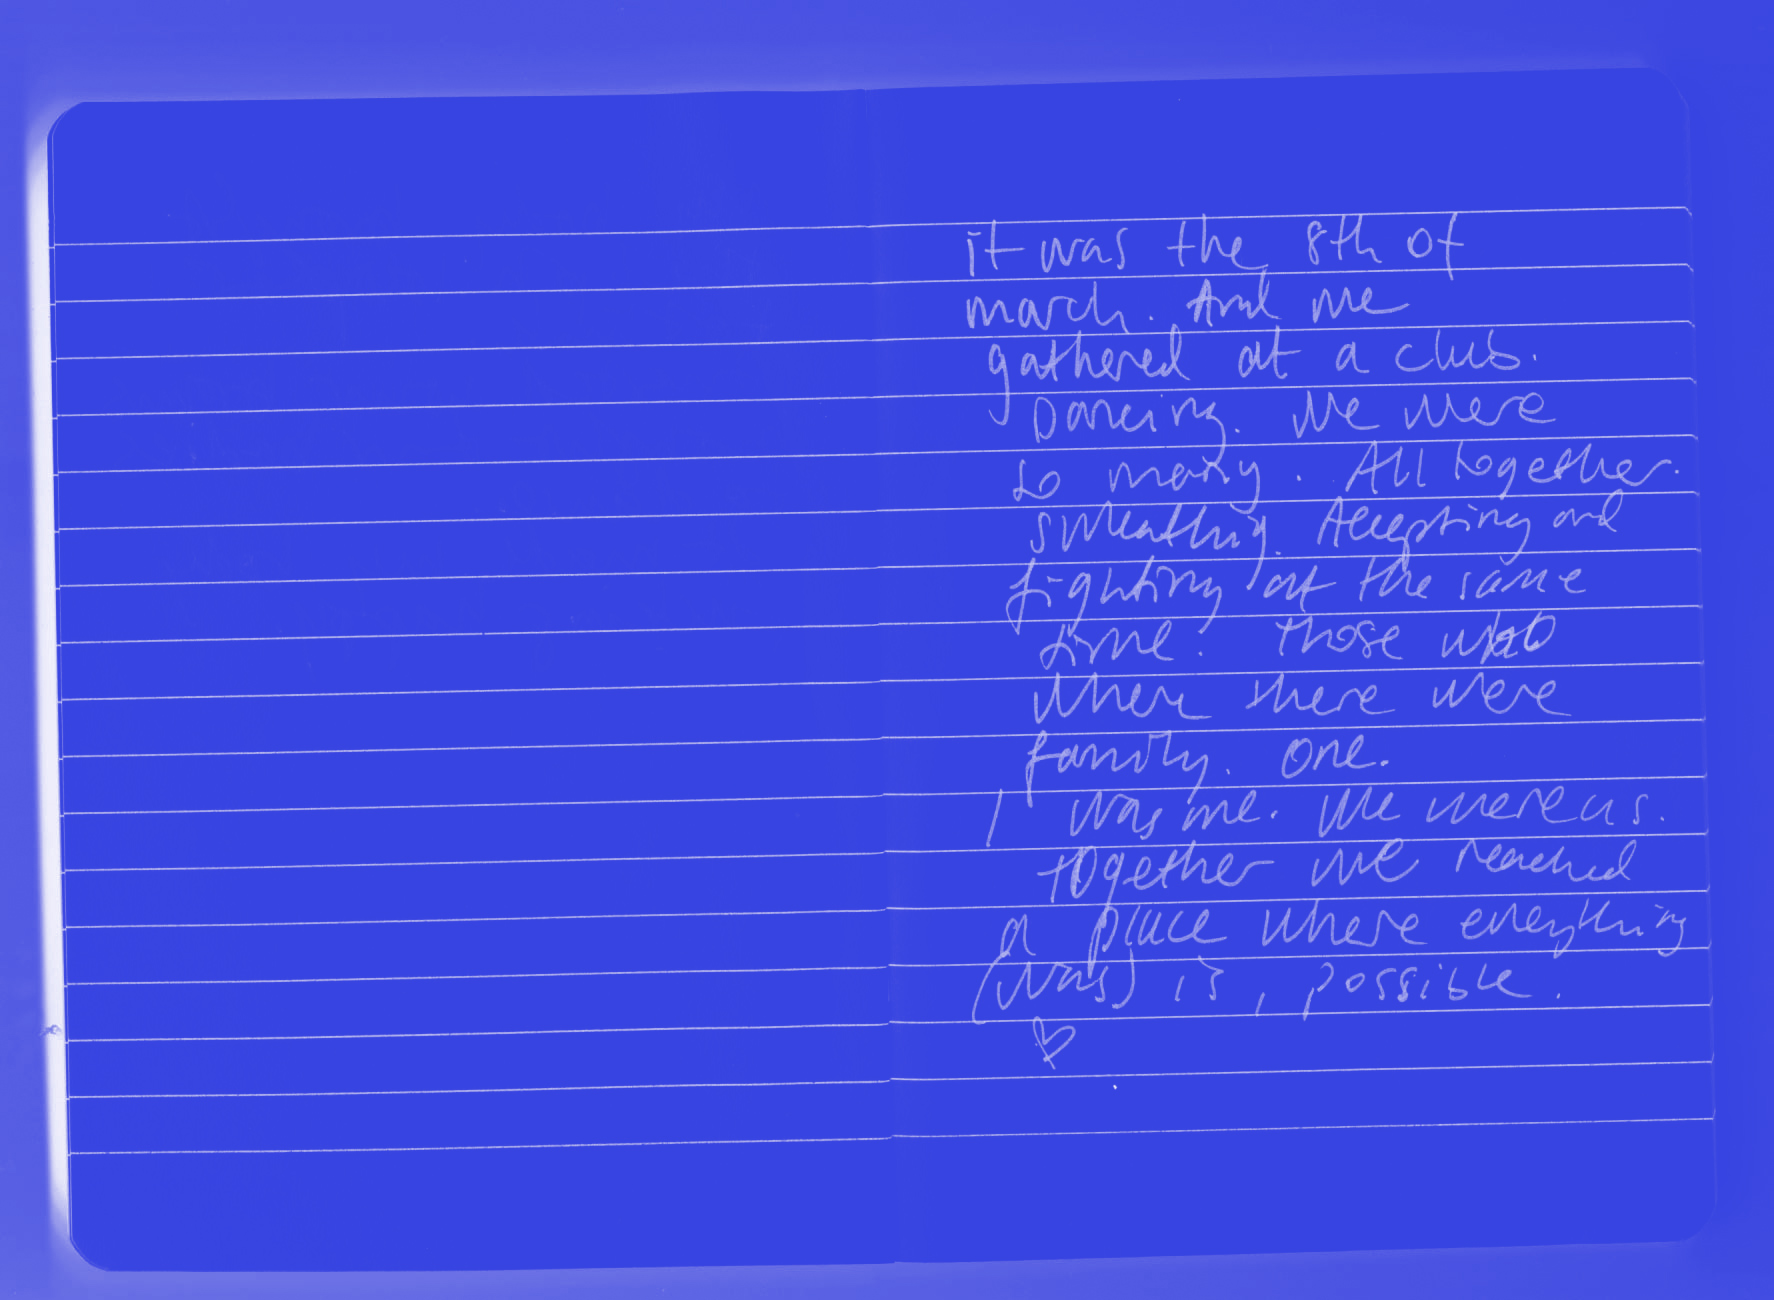 it was the 8th of
march. And we
gathered at a club.
Dancing. We were
so many. All together.
sweathing. Accepting and
fighting at the same
time. Those who
where there were
family. One.
I was me. We were us.
together we reached
a place where everything
(was) is, possible.
♡